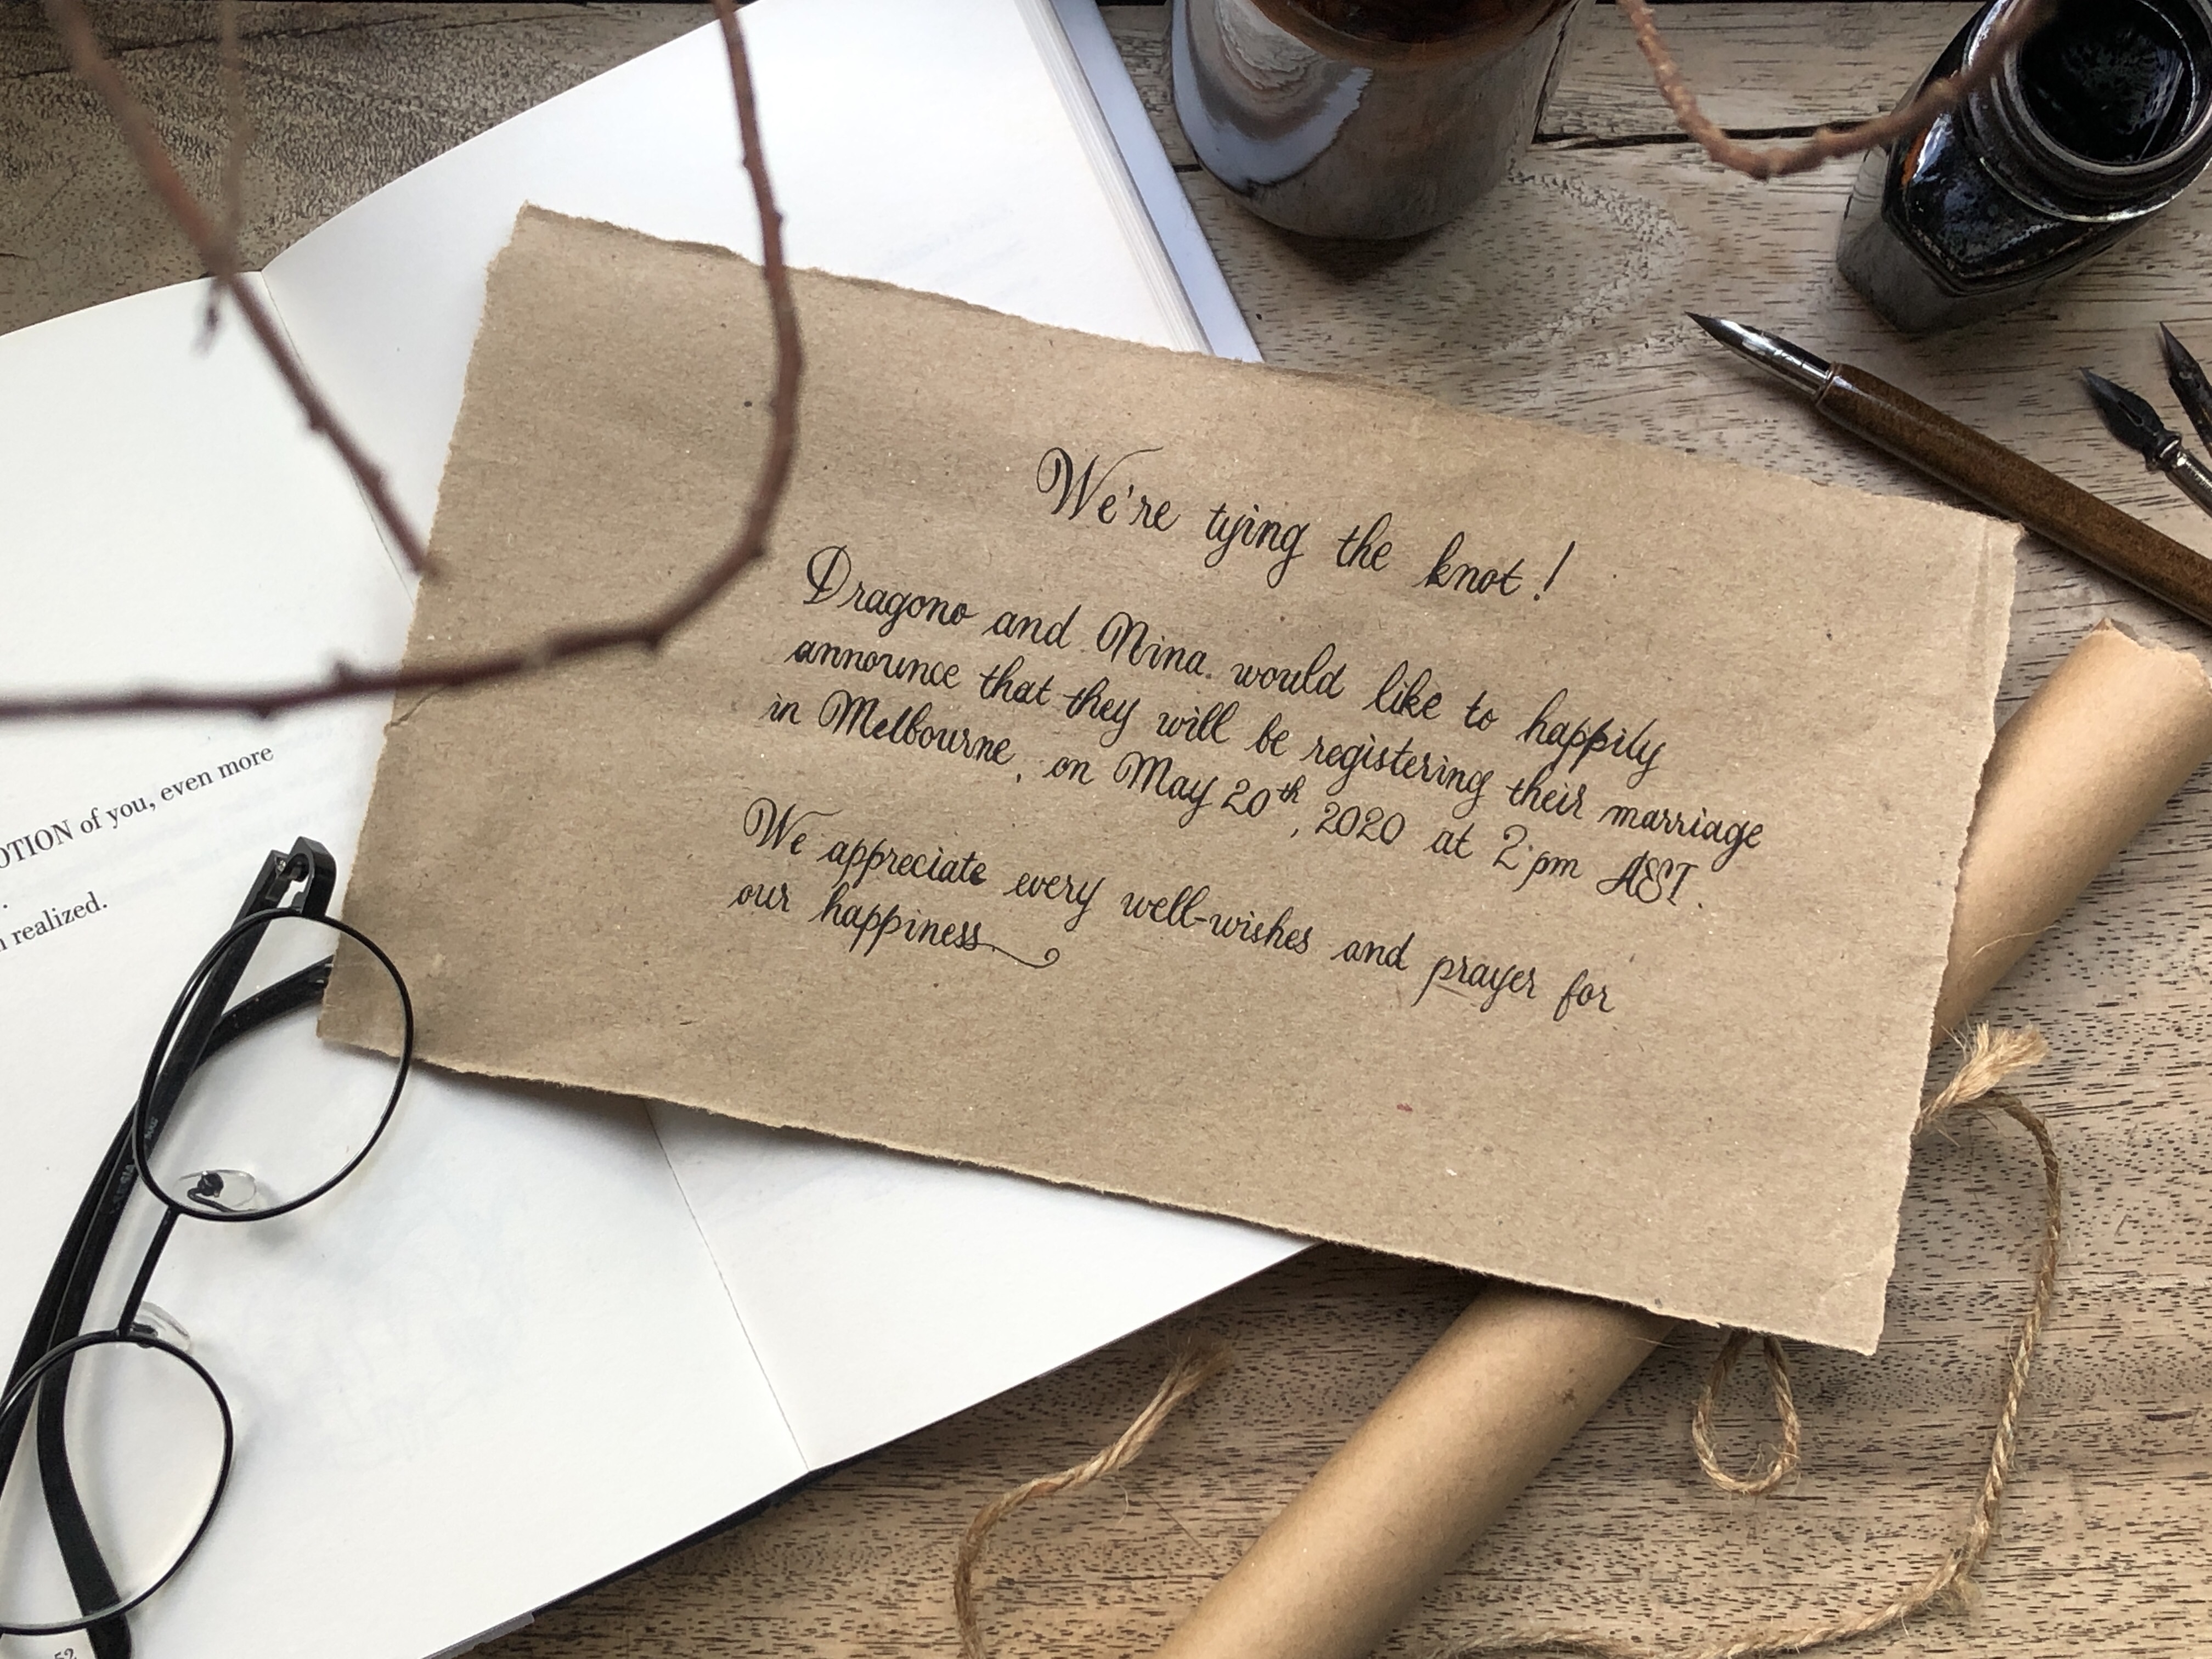 We're tying the knot!
Dragono and Nina would like to happily
announce that they will be registering their marriage
in Melbourne, on May 20th, 2020 at 2 pm AEST.
We appreciate every well-wishes and prayer for
our happiness
OTION of you, even more
realized.
52